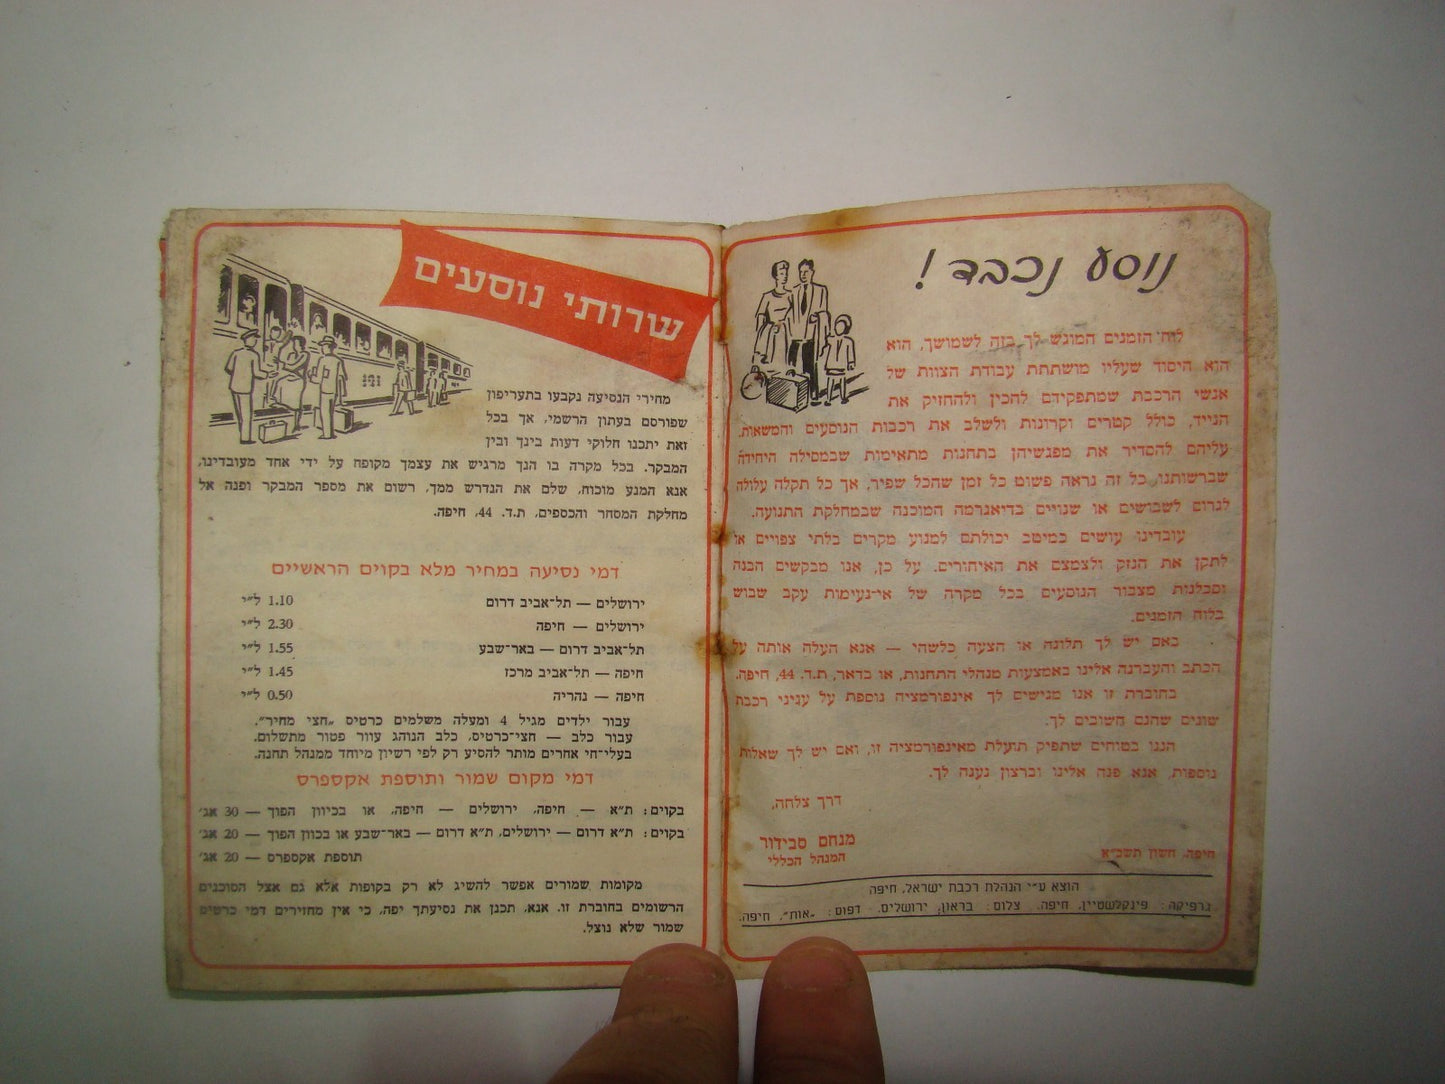 נוסע נכבד!
לוח הזמנים המוגש לך בזה לשמושך, הוא
הוא היסוד שעליו מושתתת עבודת הצוות של
אנשי הרכבת שמתפקידם להכין ולהחזיק את
הנייד, כולל קטרים וקרונות ולשלב את רכבות הנוסעים והמשאות.
עליהם להסדיר את מפגשיהן בתחנות מתאימות שבמסילה היחידה
שברשותנו, כל זה נראה פשוט כל זמן שהכל שפיר, אך כל תקלה עלולה
לגרום לשבושים או שנויים בדיאגרמה המוכנה שבמחלקת התנועה.
עובדינו עושים כמיטב יכולתם למנוע מקרים בלתי צפויים או
לתקן את הנזק ולצמצם את האיחורים. על כן, אנו מבקשים הבנה
וסבלנות מצבור הנוסעים בכל מקרה של אי־נעימות עקב שבוש
בלוח הזמנים.
באם יש לך תלונה או הצעה כלשהי — אנא העלה אותה על
הכתב והעברנה אלינו באמצעות מנהלי התחנות, או בדאר, ת.ד. 44, חיפה.
בחוברת זו אנו מגישים לך אינפורמציה נוספת על עניני רכבת
שונים שהנם חשובים לך.
הננו בטוחים שתפיק תועלת מאינפורמציה זו, ואם יש לך שאלות
נוספות, אנא פנה אלינו וברצון נענה לך.
דרך צלחה,
מנחם סבידור
המנהל הכללי
חיפה, חשון תשכ״א
הוצא ע״י הנהלת רכבת ישראל, חיפה
גרפיקה: פינקלשטיין, חיפה. צלום: בראון, ירושלים. דפוס: „אות״, חיפה.
שרותי נוסעים
מחירי הנסיעה נקבעו בתעריפון
שפורסם בעתון הרשמי, אך בכל
זאת יתכנו חלוקי דעות בינך ובין
המבקר. בכל מקרה בו הנך מרגיש את עצמך מקופח על ידי אחד מעובדינו,
אנא המנע מוכוח, שלם את הנדרש ממך, רשום את מספר המבקר ופנה אל
מחלקת המסחר והכספים, ת.ד. 44, חיפה.
דמי נסיעה במחיר מלא בקוים הראשיים
ירושלים — תל־אביב דרום 1.10 ל״י
ירושלים — חיפה 2.30 ל״י
תל־אביב דרום — באר־שבע 1.55 ל״י
חיפה — תל־אביב מרכז 1.45 ל״י
חיפה — נהריה 0.50 ל״י
עבור ילדים מגיל 4 ומעלה משלמים כרטיס „חצי מחיר״.
עבור כלב — חצי־כרטיס, כלב הנוהג עוור פטור מתשלום.
בעלי־חי אחרים מותר להסיע רק לפי רשיון מיוחד ממנהל תחנה.
דמי מקום שמור ותוספת אקספרס
בקוים: ת״א — חיפה, ירושלים — חיפה, או בכיוון הפוך — 30 אג׳
בקוים: ת״א דרום — ירושלים, ת״א דרום — באר־שבע או בכוון הפוך — 20 אג׳
תוספת אקספרס — 20 אג׳
מקומות שמורים אפשר להשיג לא רק בקופות אלא גם אצל הסוכנים
הרשומים בחוברת זו. אנא, תכנן את נסיעתך יפה, כי אין מחזירים דמי כרטיס
שמור שלא נוצל.